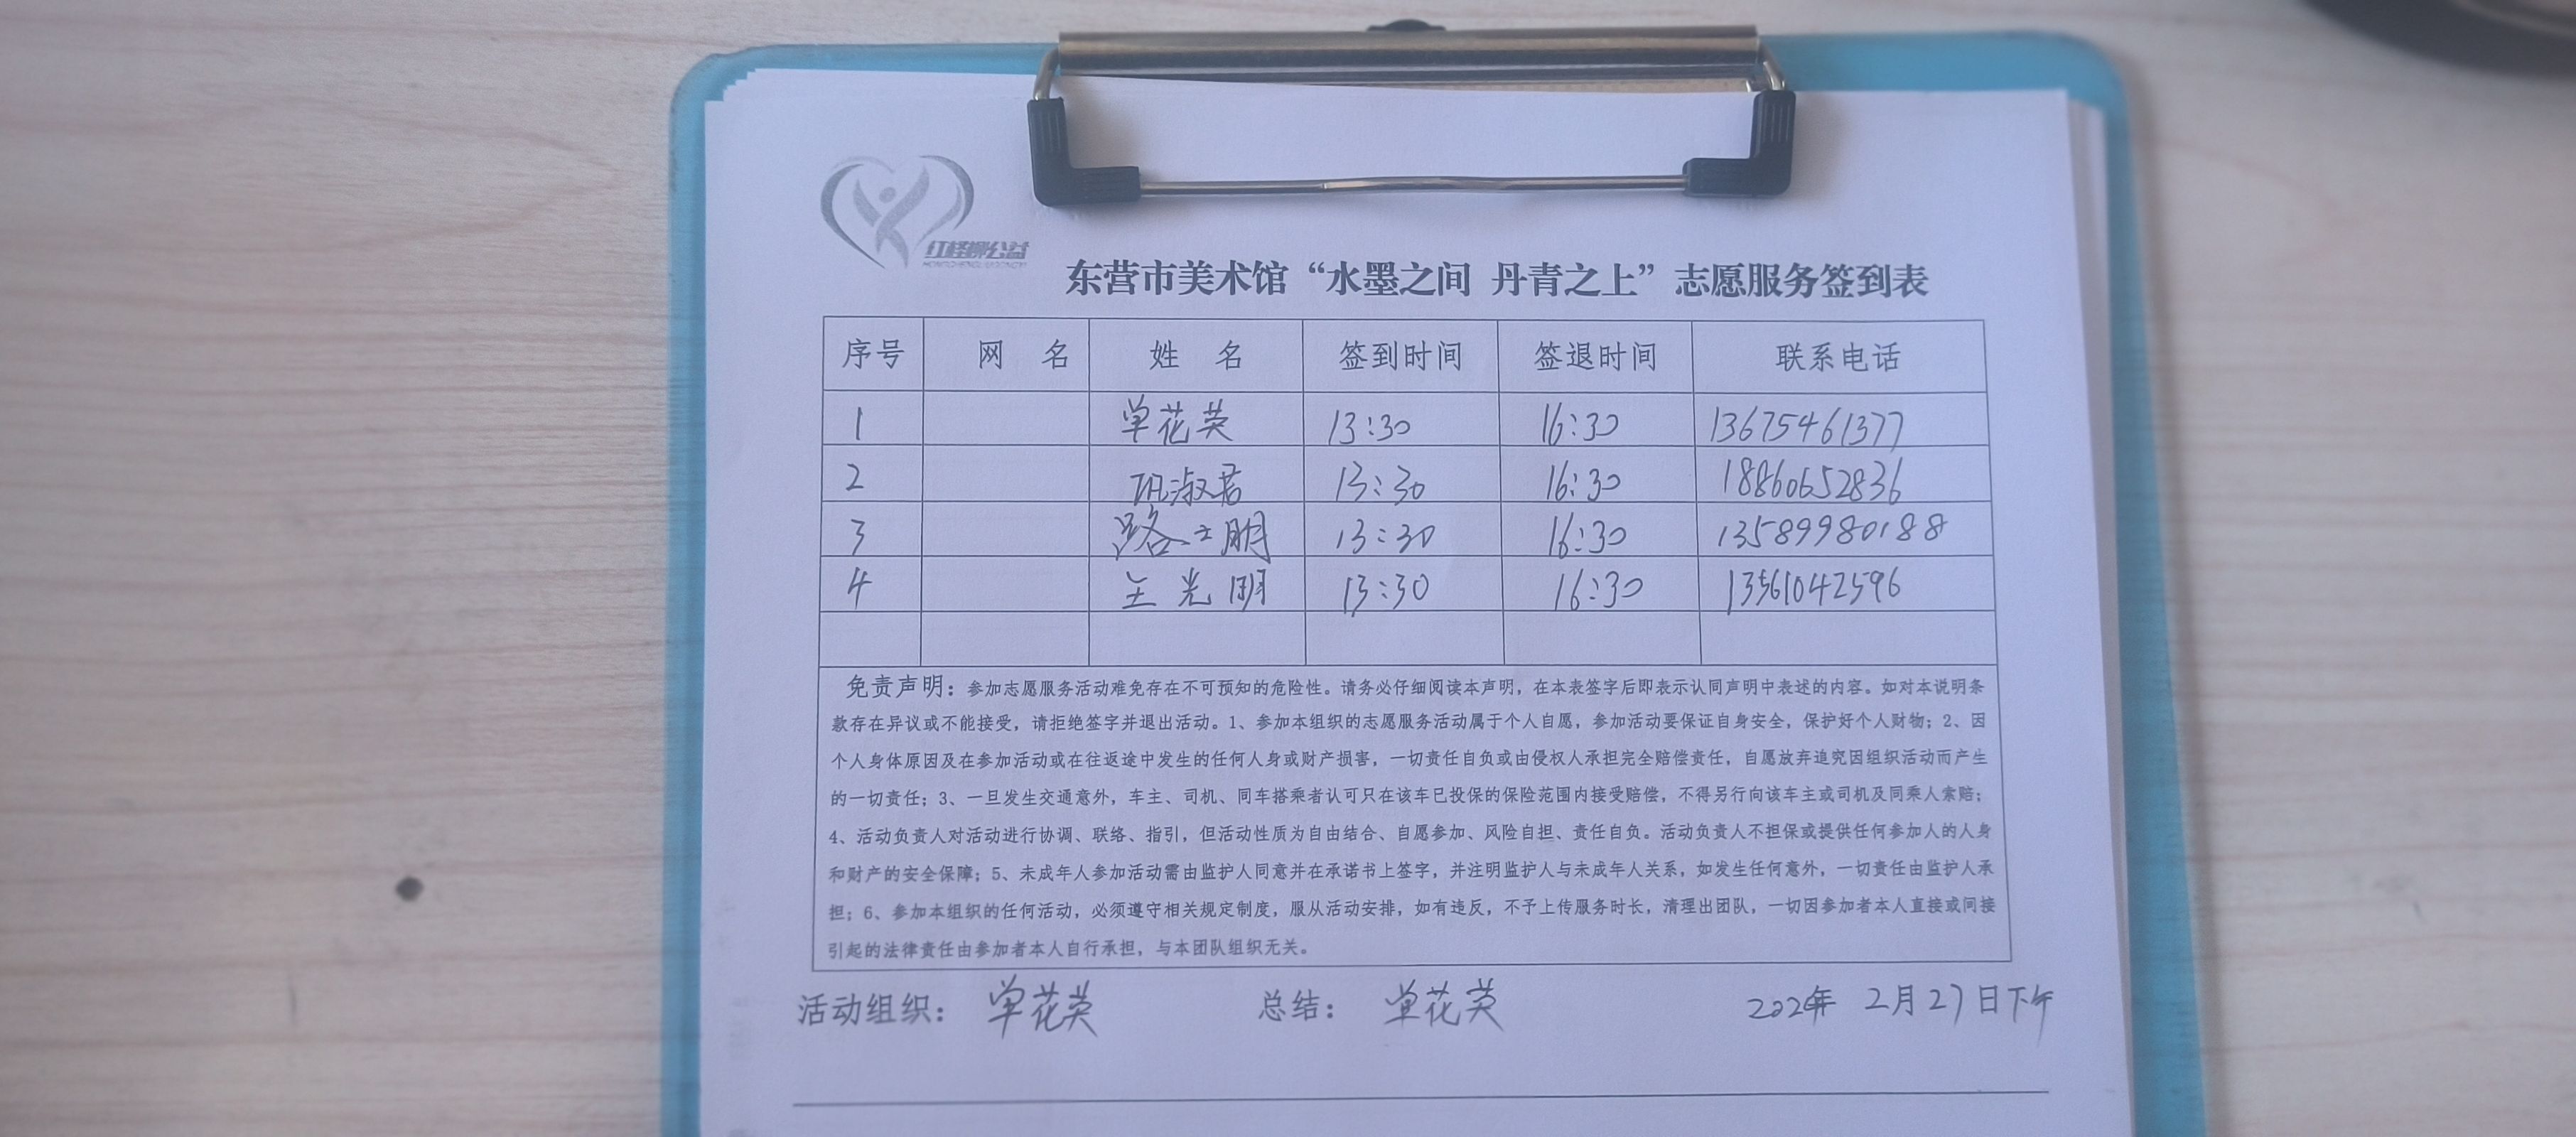 红柽柳公益
东营市美术馆“水墨之间 丹青之上”志愿服务签到表
序号 网 名 姓 名 签到时间 签退时间 联系电话
1 单花英 13:30 16:30 13675461377
2 巩淑君 13:30 16:30 18860652836
3 路士明 13:30 16:30 13589980188
4 王光明 13:30 16:30 13561042596
免责声明：参加志愿服务活动难免存在不可预知的危险性。请务必仔细阅读本声明，在本表签字后即表示认同声明中表述的内容。如对本说明条
款存在异议或不能接受，请拒绝签字并退出活动。1、参加本组织的志愿服务活动属于个人自愿，参加活动要保证自身安全，保护好个人财物；2、因
个人身体原因及在参加活动或在往返途中发生的任何人身或财产损害，一切责任自负或由侵权人承担完全赔偿责任，自愿放弃追究因组织活动而产生
的一切责任；3、一旦发生交通意外，车主、司机、同车搭乘者认可只在该车已投保的保险范围内接受赔偿，不得另行向该车主或司机及同乘人索赔；
4、活动负责人对活动进行协调、联络、指引，但活动性质为自由结合、自愿参加、风险自担、责任自负。活动负责人不担保或提供任何参加人的人身
和财产的安全保障；5、未成年人参加活动需由监护人同意并在承诺书上签字，并注明监护人与未成年人关系，如发生任何意外，一切责任由监护人承
担；6、参加本组织的任何活动，必须遵守相关规定制度，服从活动安排，如有违反，不予上传服务时长，清理出团队，一切因参加者本人直接或间接
引起的法律责任由参加者本人自行承担，与本团队组织无关。
活动组织： 单花英 总结： 单花英 2024年 2月27日下午